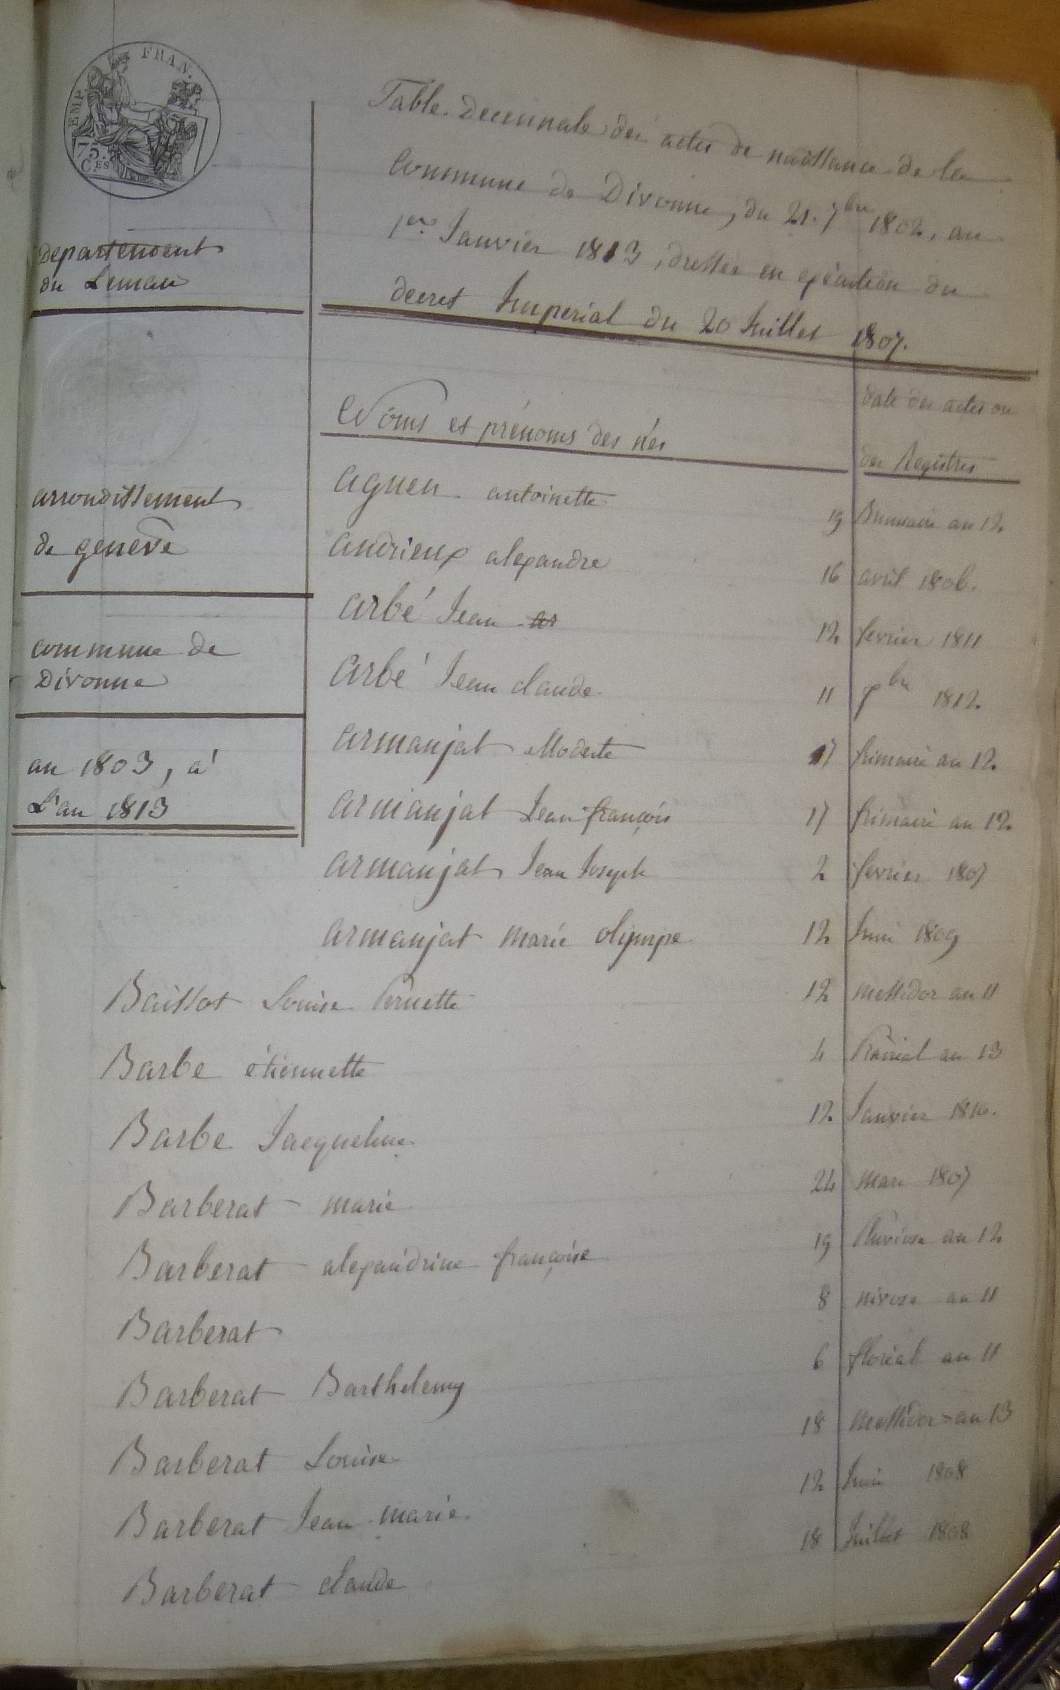 EMP. FRAN.
75.
C.ES
departement
du Leman
arrondissement
de genève
commune de
Divonne
an 1803, a'
L'an 1813
Table decennale des actes de naissance de la
commune de Divonne, du 21. 7bre 1802, au
1er Janvier 1813, dressée en exécution du
decret Imperial du 20 Juillet 1807.
Noms et prénoms des nés
date des actes ou
des Registres
agnen antoinette 19 Brumaire an 12.
andrieux alexandre 16 avril 1806.
arbé Jean ar 12 fevrier 1811
arbé Jean claude 11 7bre 1812.
armanjat Modeste 17 frimaire an 12.
armanjat Jean françois 17 frimaire an 12.
armanjat Jean Joseph 2 fevrier 1807
armanjat marie olympe 12 Juin 1809
Baissot Louise Pernette 12 messidor an 11
Barbe étiennette 4 Prairial an 13
Barbe Jacqueline 12 Janvier 1810.
Barberat marie 24 mars 1807
Barberat alexandrine françoise 19 Pluviose an 12
Barberat 8 nivose an 11
Barberat Barthelemy 6 floréal an 11
Barberat Louise 18 messidor an 13
Barberat Jean marie 12 Juin 1808
Barberat claude 18 Juillet 1808